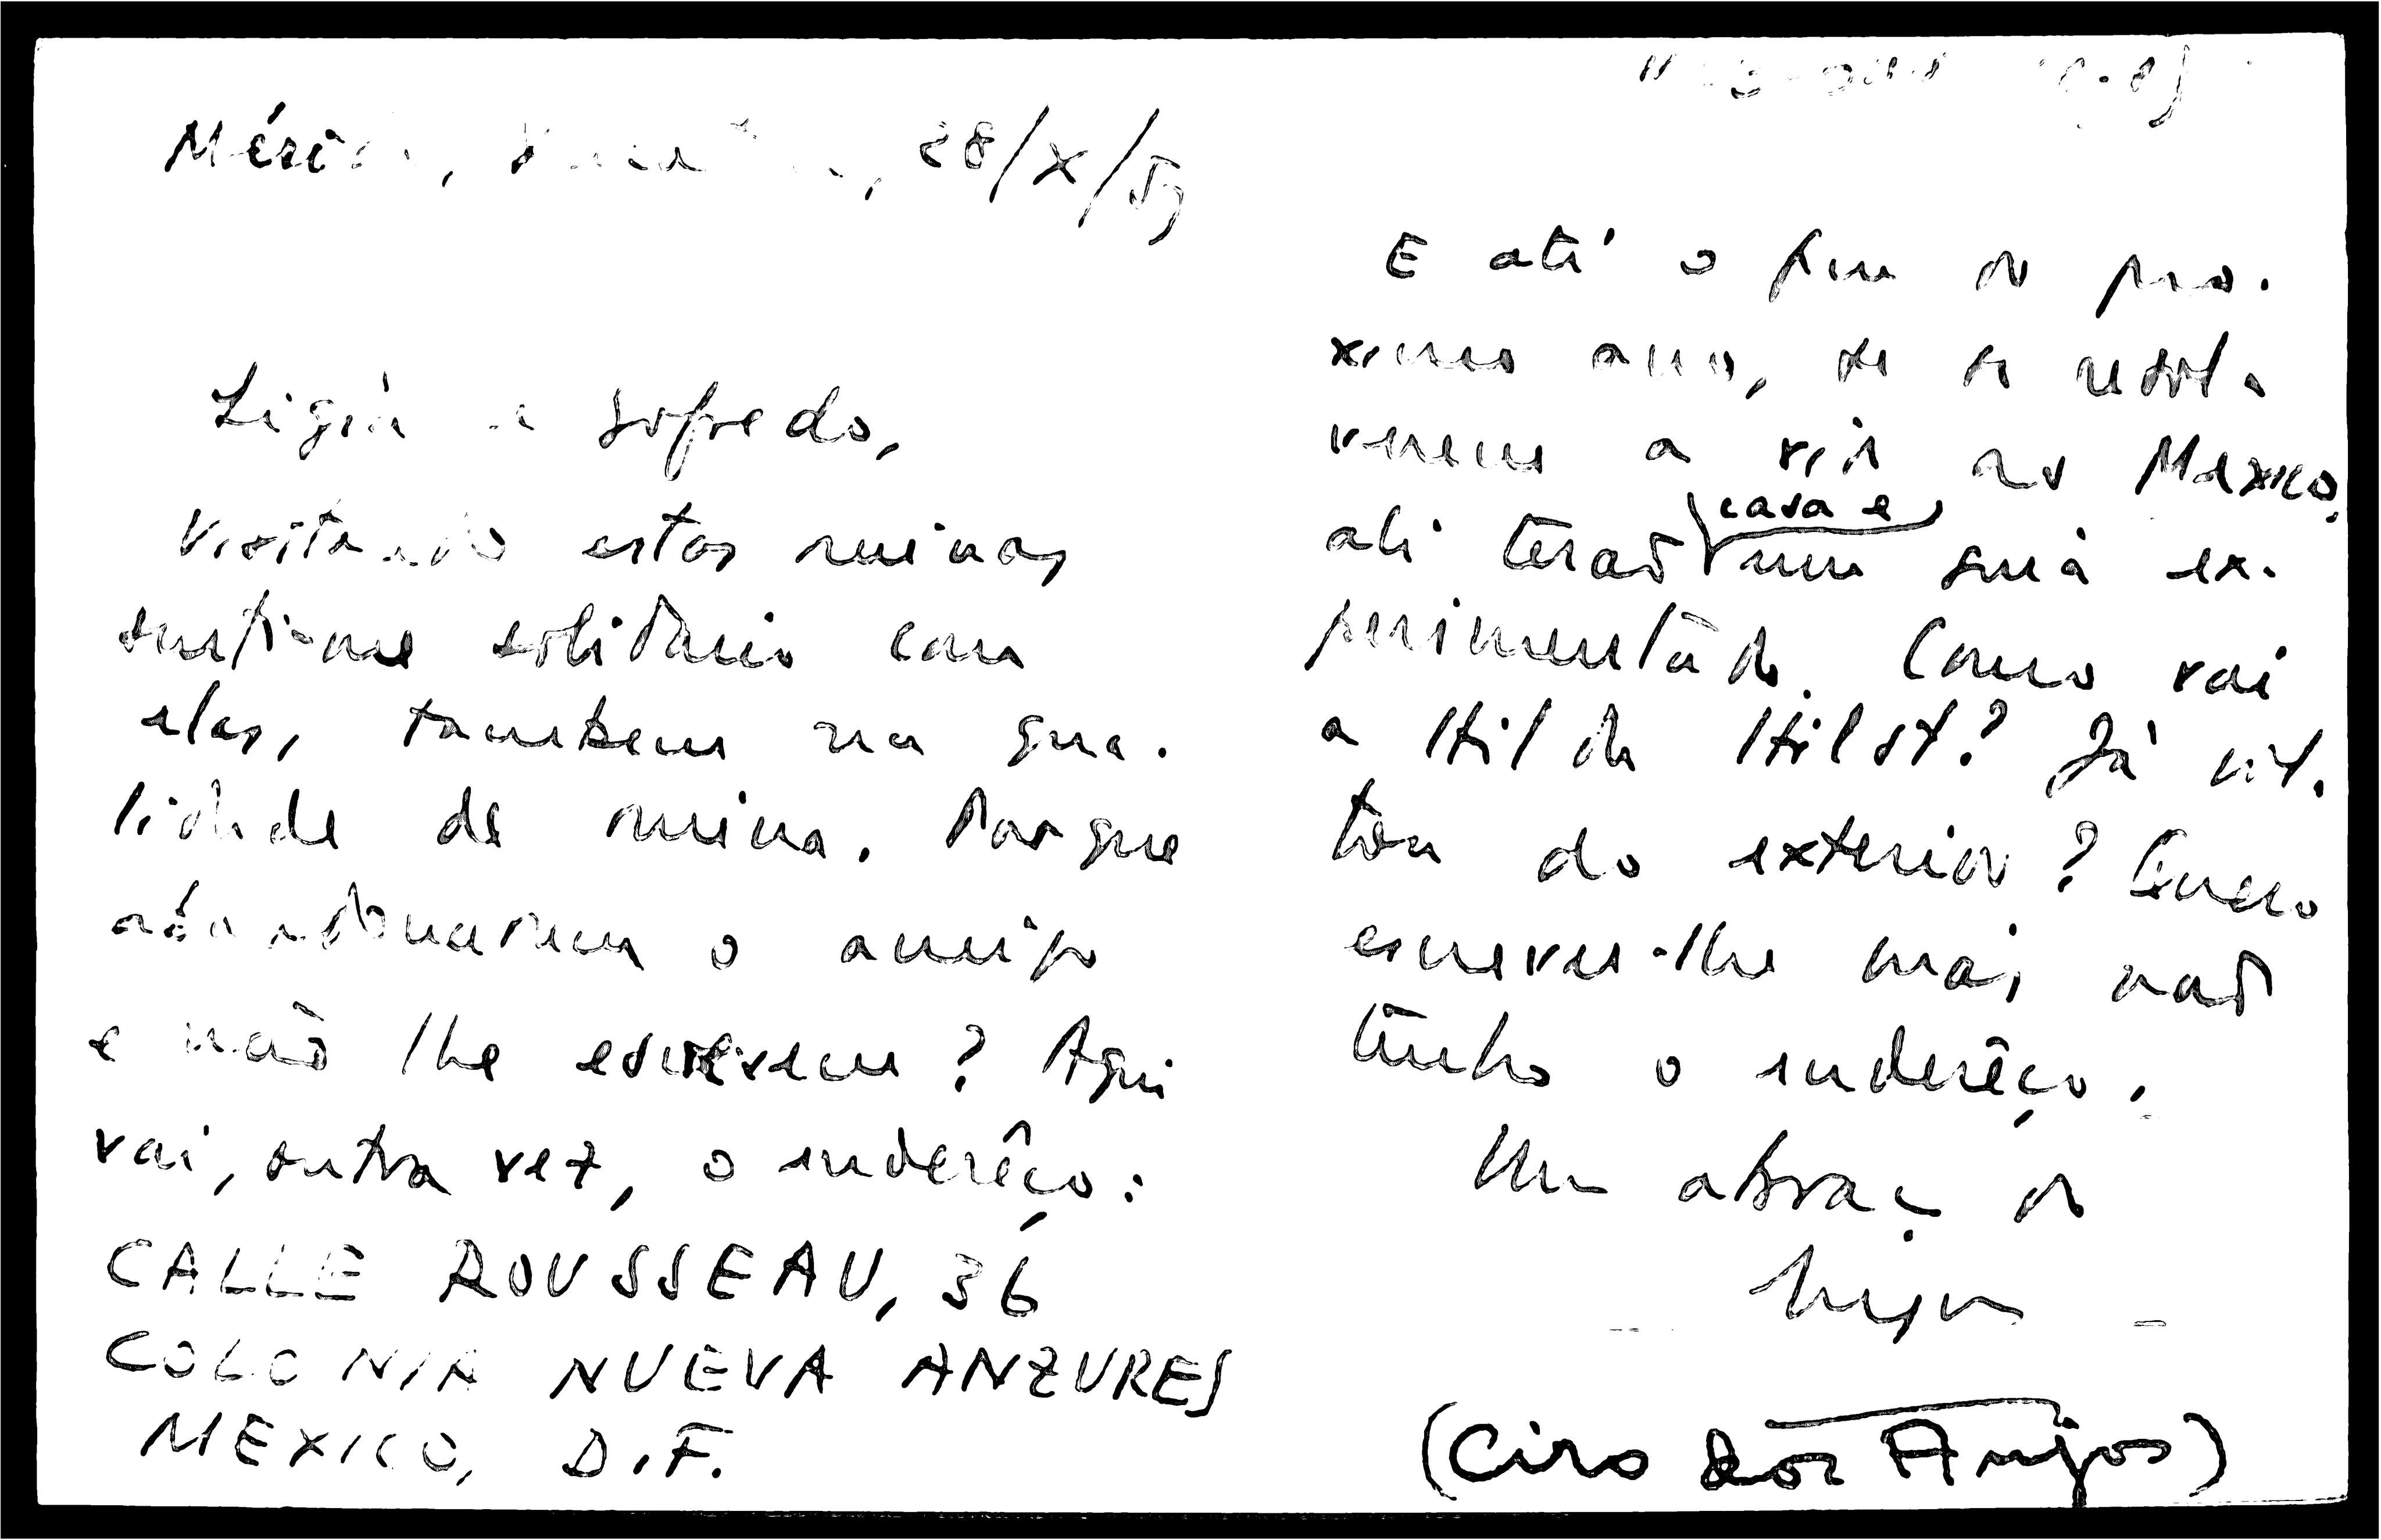 Mérida, Yucatan, 28/X/53
Ligia e Gofredo,
Visitando estas ruinas
senti-me solidario com
elas, tambem na qua-
lidade de ruina. Porque
abandonaram o amigo
e não lhe escrevem? Aqui
vai, outra vez, o enderêço:
CALLE ROUSSEAU, 36
COLONIA NUEVA ANZURES
MEXICO, D.F.
E até o fim do pro-
ximo ano, se se resol-
verem a vir ao Mexico,
ali terão casa e
um guia ex-
perimentado. Como vai
a Hilda Hilst? Já vol-
tou do exterior? Quero
escrever-lhe mas não
tenho o enderêço.
Um abraço do
(Ciro dos Anjos)